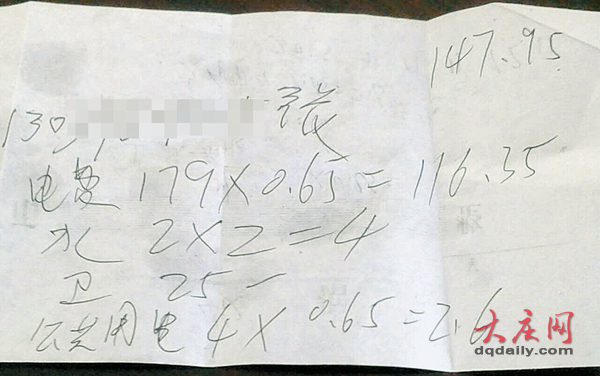 147.95
130 张
电费 179×0.65=116.35
水 2×2=4
卫 25-
公共用电 4×0.65=2.6
大庆网
dqdaily.com